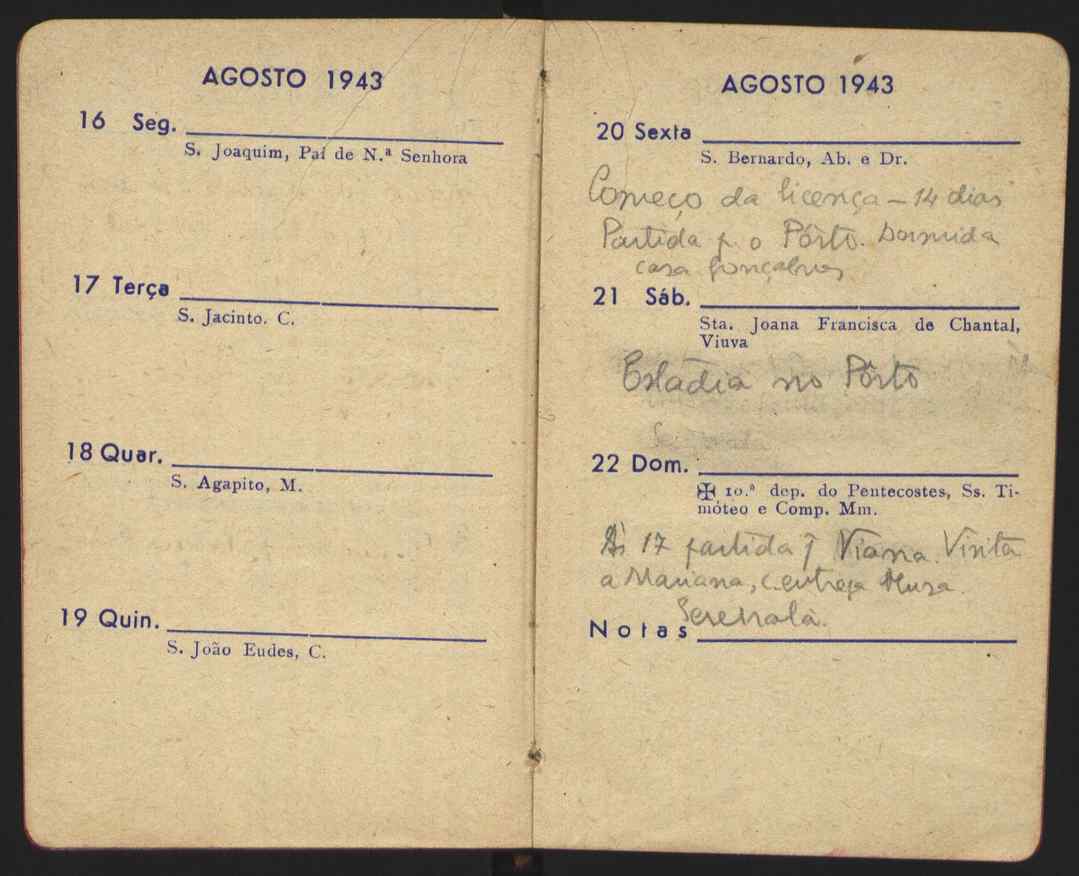 AGOSTO 1943
16 Seg.
S. Joaquim, Pai de N.ª Senhora
17 Terça
S. Jacinto. C.
18 Quar.
S. Agapito, M.
19 Quin.
S. João Eudes, C.
AGOSTO 1943
20 Sexta
S. Bernardo, Ab. e Dr.
Começo da licença – 14 dias
Partida p. o Pôrto. Dormida
casa Gonçalves
21 Sáb.
Sta. Joana Francisca de Chantal,
Viuva
Estadia no Pôrto
22 Dom.
✠ 10.ª dep. do Pentecostes, Ss. Ti-
móteo e Comp. Mm.
Às 17 partida Viana. Visita
a Mariana, c. entrega
Notas